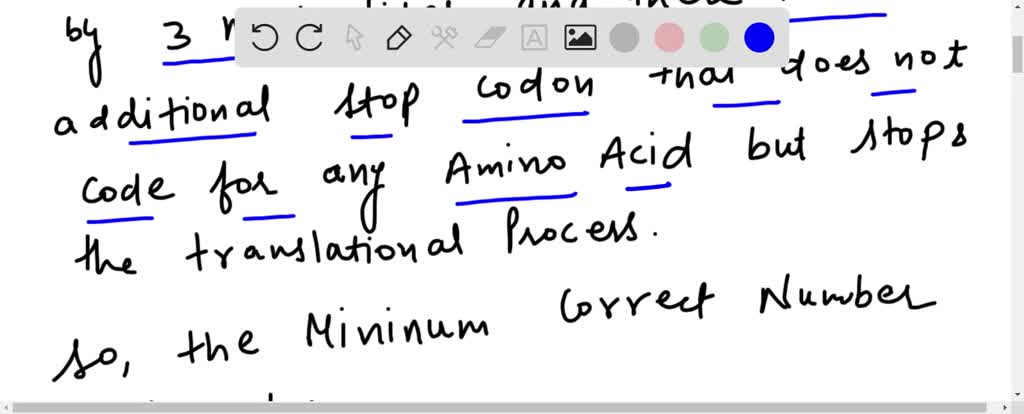 by 3
additional stop codon that does not
code for any Amino Acid but stops
the translational Process.
so, the Mininum Correct Number